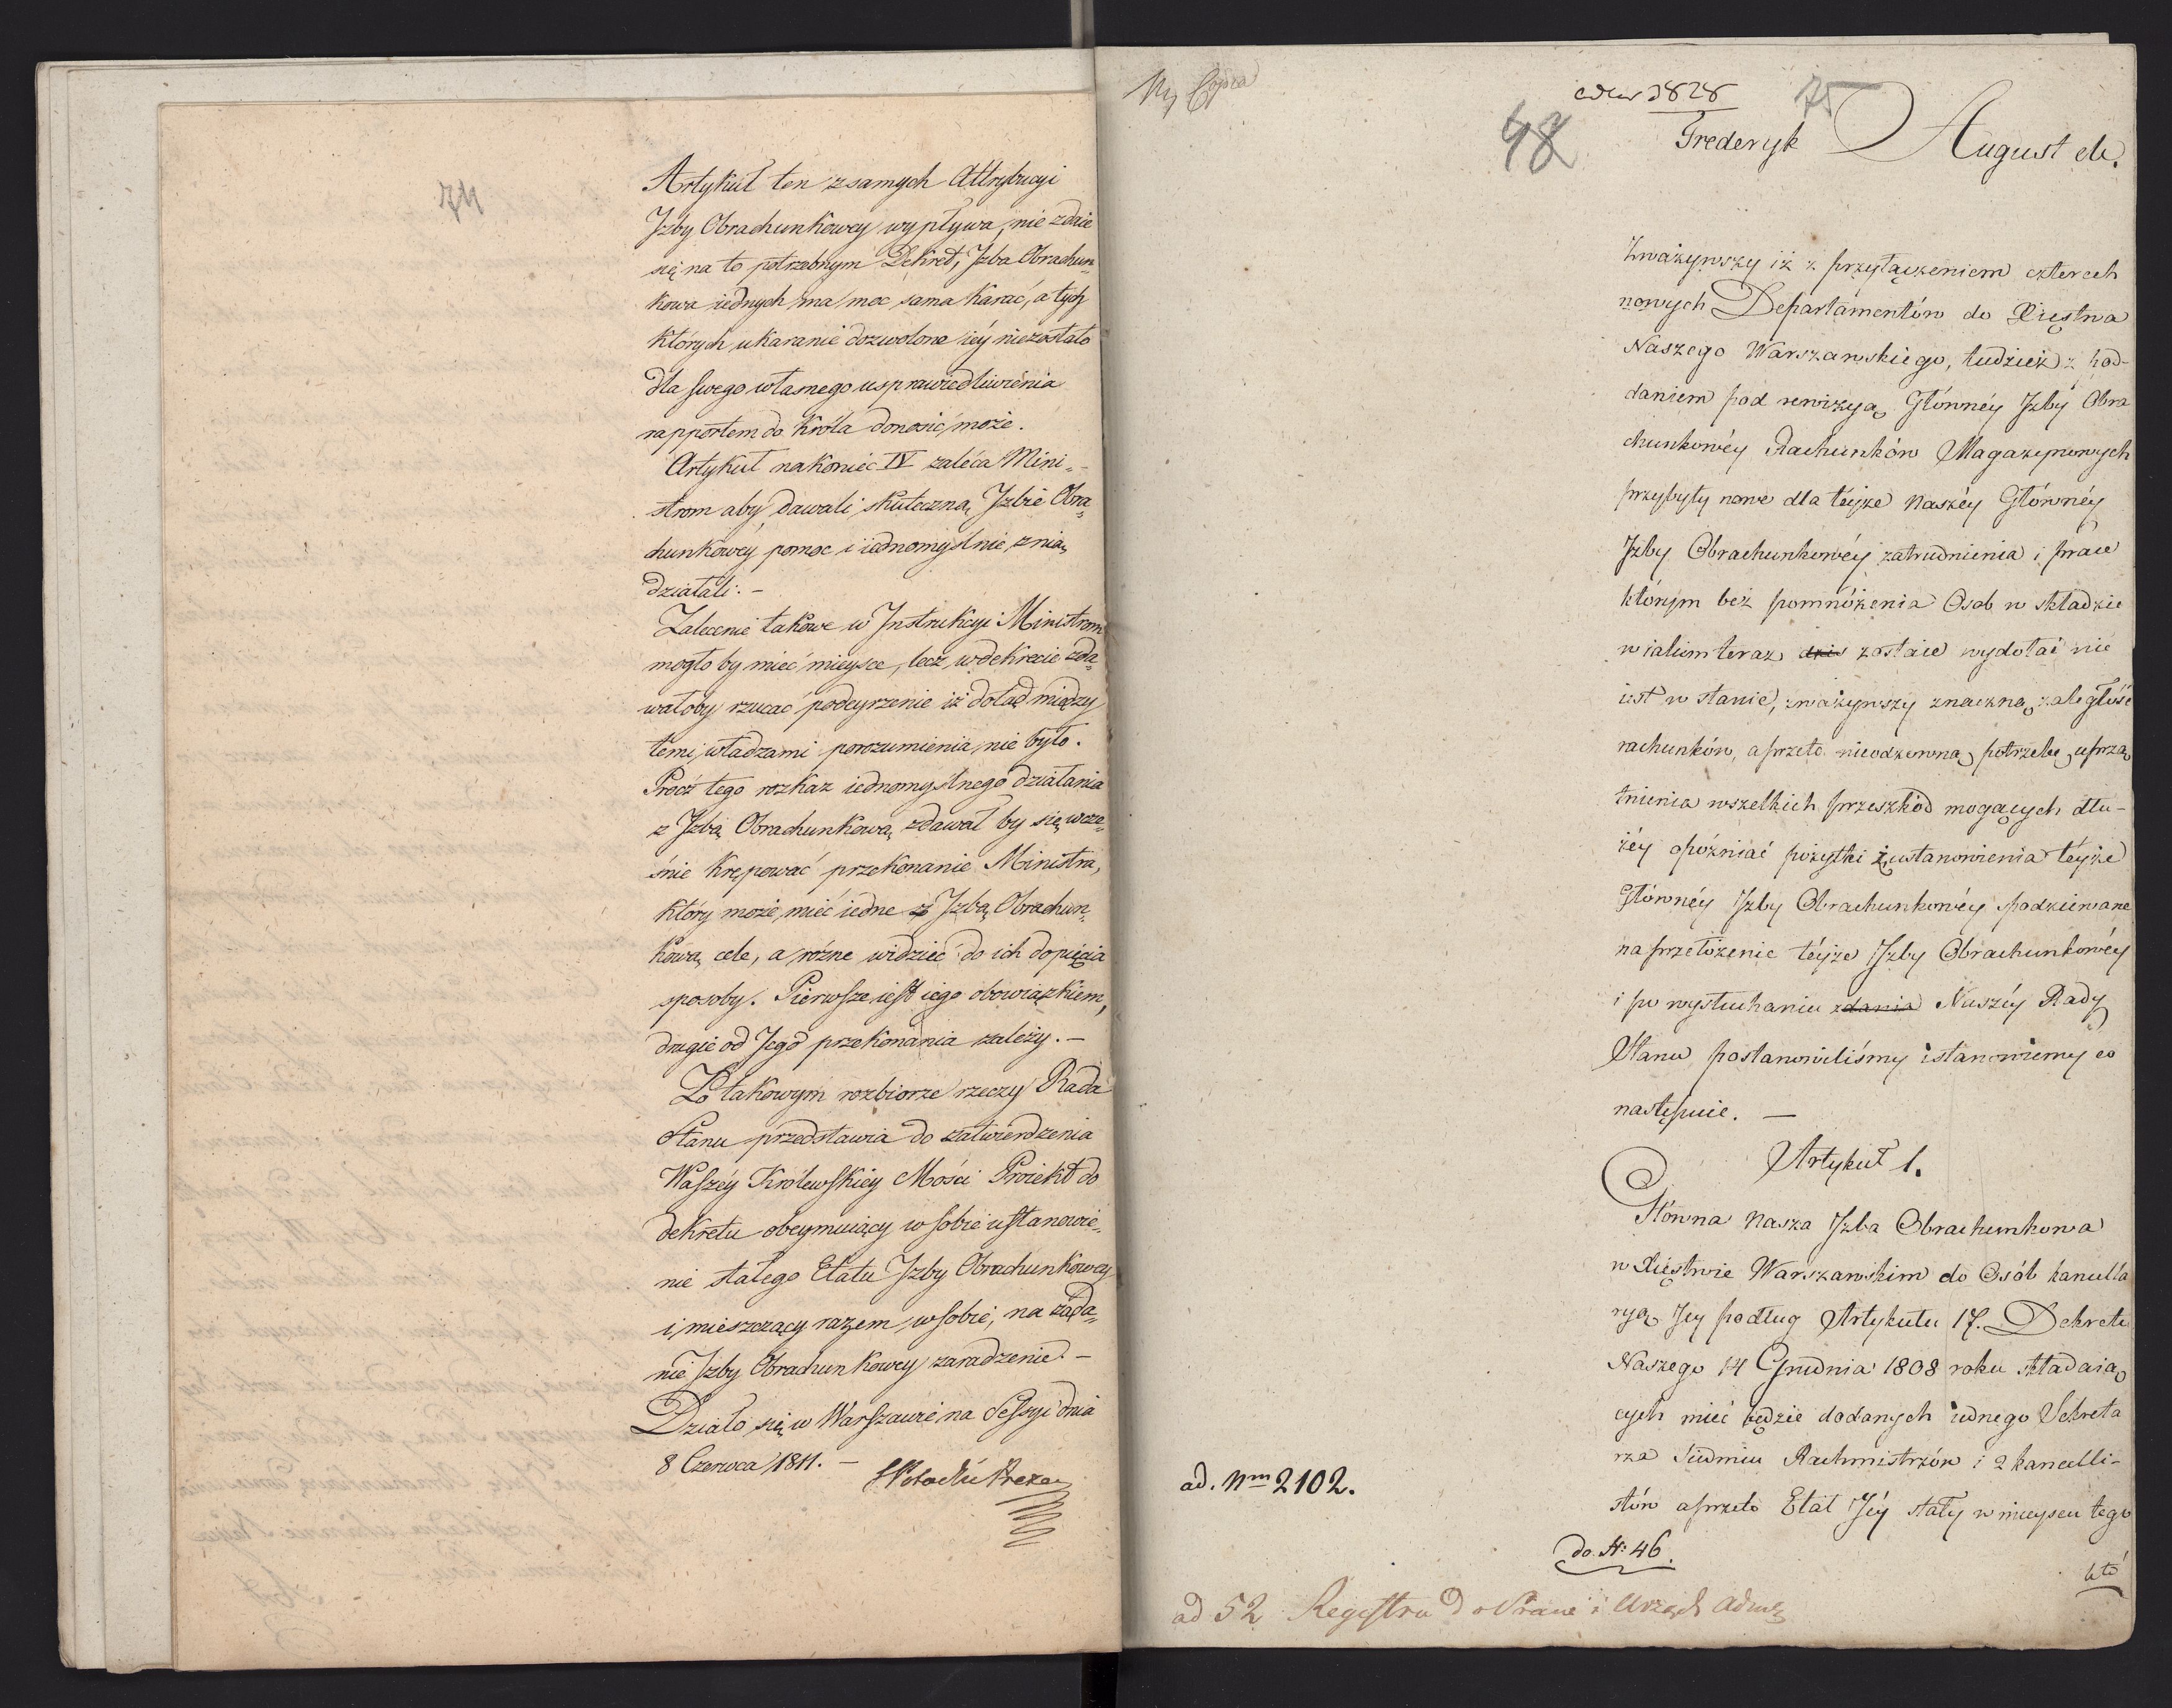 74
Artykuł ten z samych Attrybucyi
Jzby Obrachunkowey wypływa, nie zdaie
się na to potrzebnym Dekret, Jzba Obrachun„
kowa iednych ma moc sama karać, a tych
których ukaranie dozwolone iéy niezostało
dla swego własnego usprawiedliwienia
rapportem do Króla donosić może.
Artykuł nakoniec IV zaléca Mini„
strom aby dawali skuteczną Jzbie Obra„
chunkowéy pomoc i iednomyślnie z nią
działali. –
Zalecenie takowe w Jnstrukcyi Ministrom
mogło by mieć mieysce, lecz w dekrecie zda„
wałoby rzucać podeyrzenie iż dotąd między
temi władzami porozumienia nie było.
Prócz tego rozkaz iednomyślnego działania
z Jzbą Obrachunkową zdawał by się wcze„
śnie krępować przekonanie Ministra,
który może mieć iedne z Jzbą Obrachun„
kową cele, a różne widzieć do ich dopięcia
sposoby. Pierwsze iest iego obowiązkiem,
drugie od Jego przekonania zależy. –
Po takowym rozbiorze rzeczy Rada
Stanu przedstawia do zatwierdzenia
Waszéy Królewskiéy Mości Proiekt do
dekretu obeymuiący w sobie ustanowie„
nie stałego Etatu Jzby Obrachunkowey
i mieszczący razem w sobie, na żąda„
nie Jzby Obrachunkowey zaradzenie. –
Działo się w Warszawie na Sessyi dnia
8 Czerwca 1811. –
Copia
3828
75
48
Frederyk August etc.
Zważywszy iż z przyłączeniem czterech
nowych Departamentów do Xięstwa
Naszego Warszawskiego, tudzież z pod-
daniem pod rewizyą Główney Jzby Obra
chunkowéy Rachunków Magazynowych
przybyły nowe dla téyże naszéy Główney
Jzby Obrachunkowéy zatrudnienia i prace
którym bez pomnożenia Osob w składzie
w iakim teraz dziś zostaie wydołać nie
iest w stanie, zważywszy znaczną zaległość
rachunków, a przeto nieodzowną potrzebę uprzą
tnienia wszelkich przeszkód mogących dłu-
żéy opóźniać pożytki z ustanowienia téyże
Główney Jzby Obrachunkowéy spodziewane
na przełożenie téyże Jzby Obrachunkowéy
i po wysłuchaniu zdania Naszéy Rady
Stanu postanowiliśmy i stanowiemy co
następuie. —
Artykuł 1.
Główna nasza Jzba Obrachunkowa
w Xięstwie Warszawskim do Osób kancella
ryą Jey podług Artykułu 17. Dekretu
Naszego 14 Grudnia 1808 roku składaią
cych mieć będzie dodanych iednego Sekreta
rza Siedmiu Rachmistrzów i 2 kancelli-
stów a przeto Etat Jéy stały w mieyscu tego
któ
ad. Nm 2102.
do N: 46.
ad 52 Registru